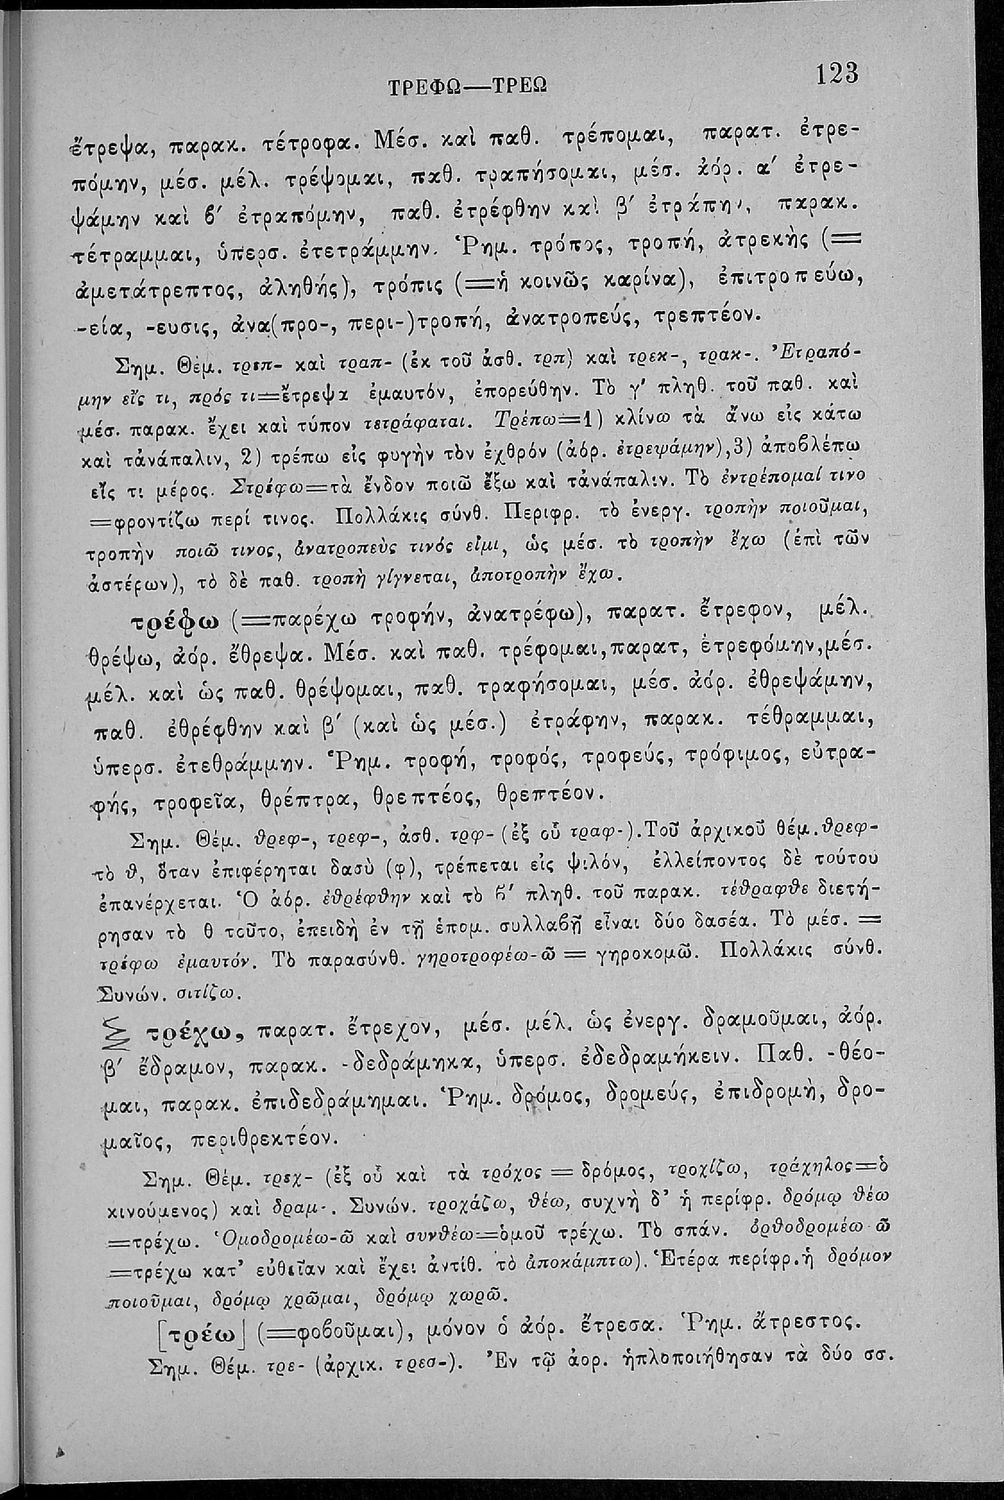 ΤΡΕΦΩ—ΤΡΕΩ
123
ἔτρεψα, παρακ. τέτροφα. Μέσ. καὶ παθ. τρέπομαι, παρατ. ἐτρε-
πόμην, μέσ. μέλ. τρέψομαι, παθ. τραπήσομαι, μέσ. ἀόρ. α′ ἐτρε-
ψάμην καὶ β′ ἐτραπόμην, παθ. ἐτρέφθην καὶ β′ ἐτράπην, παρακ.
τέτραμμαι, ὑπερσ. ἐτετράμμην. Ῥημ. τρόπος, τροπή, ἀτρεκὴς (=
ἀμετάτρεπτος, ἀληθής), τρόπις (=ἡ κοινῶς καρίνα), ἐπιτροπεύω,
-εία, -ευσις, ἀνα(προ-, περι-)τροπή, ἀνατροπεύς, τρεπτέον.
Σημ. Θέμ. τρεπ- καὶ τραπ- (ἐκ τοῦ ἀσθ. τρπ) καὶ τρεκ-, τρακ-. Ἐτραπό-
μην εἴς τι, πρός τι=ἔτρεψα ἐμαυτόν, ἐπορεύθην. Τὸ γ′ πληθ. τοῦ παθ. καὶ
μέσ. παρακ. ἔχει καὶ τύπον τετράφαται. Τρέπω=1) κλίνω τὰ ἄνω εἰς κάτω
καὶ τἀνάπαλιν, 2) τρέπω εἰς φυγὴν τὸν ἐχθρόν (ἀόρ. ἐτρεψάμην),3) ἀποβλέπω
εἴς τι μέρος. Στρέφω=τὰ ἔνδον ποιῶ ἔξω καὶ τἀνάπαλιν. Τὸ ἐντρέπομαί τινο
=φροντίζω περί τινος. Πολλάκις σύνθ. Περιφρ. τὸ ἐνεργ. τροπὴν ποιοῦμαι,
τροπὴν ποιῶ τινος, ἀνατροπεὺς τινός εἰμι, ὡς μέσ. τὸ τροπὴν ἔχω (ἐπὶ τῶν
ἀστέρων), τὸ δὲ παθ. τροπὴ γίγνεται, ἀποτροπὴν ἔχω.
τρέφω (=παρέχω τροφήν, ἀνατρέφω), παρατ. ἔτρεφον, μέλ.
θρέψω, ἀόρ. ἔθρεψα. Μέσ. καὶ παθ. τρέφομαι,παρατ, ἐτρεφόμην,μέσ.
μέλ. καὶ ὡς παθ. θρέψομαι, παθ. τραφήσομαι, μέσ. ἀόρ. ἐθρεψάμην,
παθ. ἐθρέφθην καὶ β′ (καὶ ὡς μέσ.) ἐτράφην, παρακ. τέθραμμαι,
ὑπερσ. ἐτεθράμμην. Ῥημ. τροφή, τροφός, τροφεύς, τρόφιμος, εὐτρα-
φής, τροφεῖα, θρέπτρα, θρεπτέος, θρεπτέον.
Σημ. Θέμ. θρεφ-, τρεφ-, ἀσθ. τρφ- (ἐξ οὗ τραφ-).Τοῦ ἀρχικοῦ θέμ.θρεφ-
τὸ θ, ὅταν ἐπιφέρηται δασὺ (φ), τρέπεται εἰς ψιλόν, ἐλλείποντος δὲ τούτου
ἐπανέρχεται. Ὁ ἀόρ. ἐθρέφθην καὶ τὸ β′ πληθ. τοῦ παρακ. τέθραφθε διετή-
ρησαν τὸ θ τοῦτο, ἐπειδὴ ἐν τῇ ἑπομ. συλλαβῇ εἶναι δύο δασέα. Τὸ μέσ. =
τρέφω ἐμαυτόν. Τὸ παρασύνθ. γηροτροφέω-ῶ = γηροκομῶ. Πολλάκις σύνθ.
Συνών. σιτίζω.
τρέχω, παρατ. ἔτρεχον, μέσ. μέλ. ὡς ἐνεργ. δραμοῦμαι, ἀόρ.
β′ ἔδραμον, παρακ. -δεδράμηκα, ὑπερσ. ἐδεδραμήκειν. Παθ. -θέο-
μαι, παρακ. ἐπιδεδράμημαι. Ῥημ. δρόμος, δρομεύς, ἐπιδρομή, δρο-
μαῖος, περιθρεκτέον.
Σημ. Θέμ. τρεχ- (ἐξ οὗ καὶ τὰ τρόχος = δρόμος, τροχίζω, τράχηλος=ὁ
κινούμενος) καὶ δραμ-. Συνών. τροχάζω, θέω, συχνὴ δ' ἡ περίφρ. δρόμῳ θέω
=τρέχω. Ὁμοδρομέω-ῶ καὶ συνθέω=ὁμοῦ τρέχω. Τὸ σπάν. ὀρθοδρομέω-ῶ
=τρέχω κατ' εὐθεῖαν καὶ ἔχει ἀντίθ. τὸ ἀποκάμπτω). Ἑτέρα περίφρ.ἡ δρόμον
ποιοῦμαι, δρόμῳ χρῶμαι, δρόμῳ χωρῶ.
[τρέω] (=φοβοῦμαι), μόνον ὁ ἀόρ. ἔτρεσα. Ῥημ. ἄτρεστος.
Σημ. Θέμ. τρε- (ἀρχικ. τρεσ-). Ἐν τῷ ἀορ. ἡπλοποιήθησαν τὰ δύο σσ.